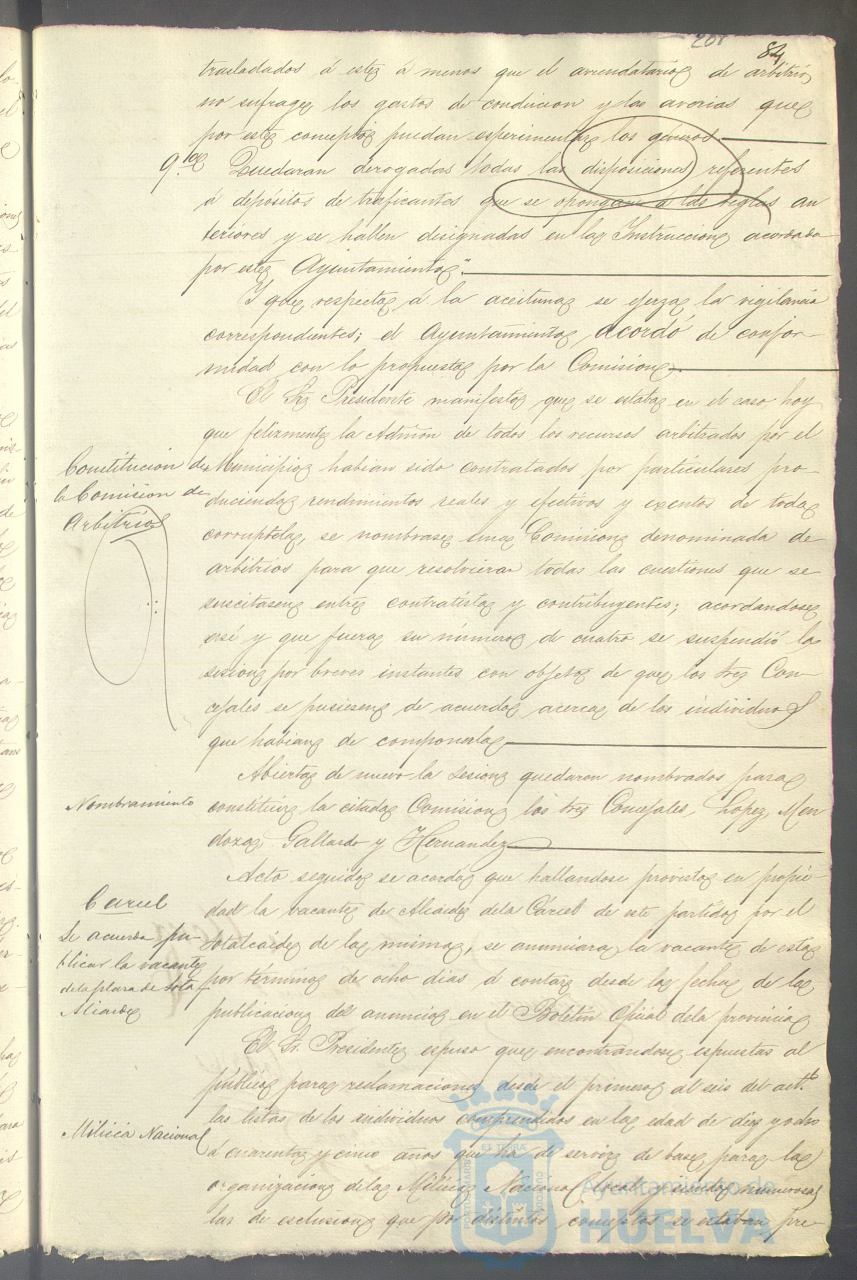 208 84
trasladados á este á menos que el arrendatario de arbitrios
no sufrague los gastos de conduccion y las averias que
por este concepto puedan esperimentar los géneros
9.ª Quedaran derogadas todas las disposiciones referentes
á depositos de traficantes que se opongan á las reglas an
teriores y se hallen designadas en la Instruccion acordada
por este Ayuntamiento".
Y que respecto á la aceituna se ejerza la vigilancia
correspondiente; el Ayuntamiento acordó de confor-
midad con lo propuesto por la Comision
El Sr Presidente manifestó que se estaba en el caso hoy
que felizmente la Admon de todos los recursos arbitrados por el
Constitución de
la Comision de
Arbitrios
Municipio habian sido contratados por particulares pro-
duciendo rendimientos reales y efectivos y exentos de toda
corruptela, se nombrase una Comision denominada de
arbitrios para que resolvieran todas las cuestiones que se
suscitasen entre contratista y contribuyentes; acordandose
asi y que fuera su número de cuatro se suspendió la
sesion por breves instantes con objeto de que los Sres Con-
cejales se pusiesen de acuerdo acerca de los individuos
que habian de componerla
Abierta de nuevo la sesion quedaron nombrados para
Nombramiento
constituir la citada Comision los Sres Concejales, Lopez, Men
doza, Gallardo y Hernandez
Acto seguido se acordó que hallandose provista en propie-
Carcel
Se acuerda pu-
blicar la vacante
de la plaza de sota
Alcaide
dad la vacante de Alcaide dela Cárcel de este partido por el
sotalcaide de la misma, se anunciara la vacante de esta
por término de ocho dias á contar desde la fecha de la
publicacion del anuncio en el Boletin Oficial dela provincia
El Sr. Presidente espuso que encontrandose espuestas al
público para reclamaciones desde el primero al seis del act.l
las listas de los individuos comprendidos en la edad de diez y ocho
Milicia Nacional
á cuarenta y cinco años que há de servir de base para la
organizacion dela Milicia Nacional local y siendo numerosas
las de esclusion que por distintos conceptos se estaban pre-
Ayuntamiento de
HUELVA